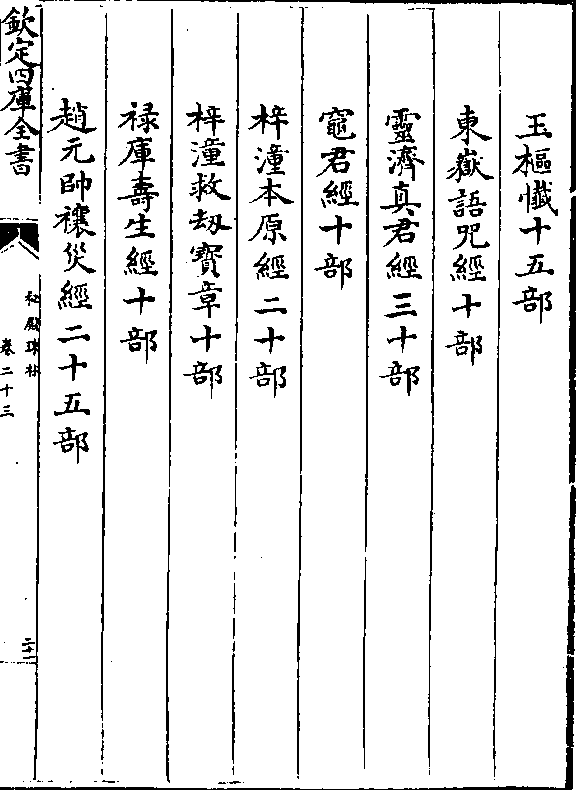 玉樞懺十五部
東嶽語咒經十部
靈濟真君經三十部
竈君經十部
梓潼本原經二十部
梓潼救刼寶章十部
祿庫壽生經十部
趙元帥禳災經二十五部
欽定四庫全書
秘殿珠林
卷二十三